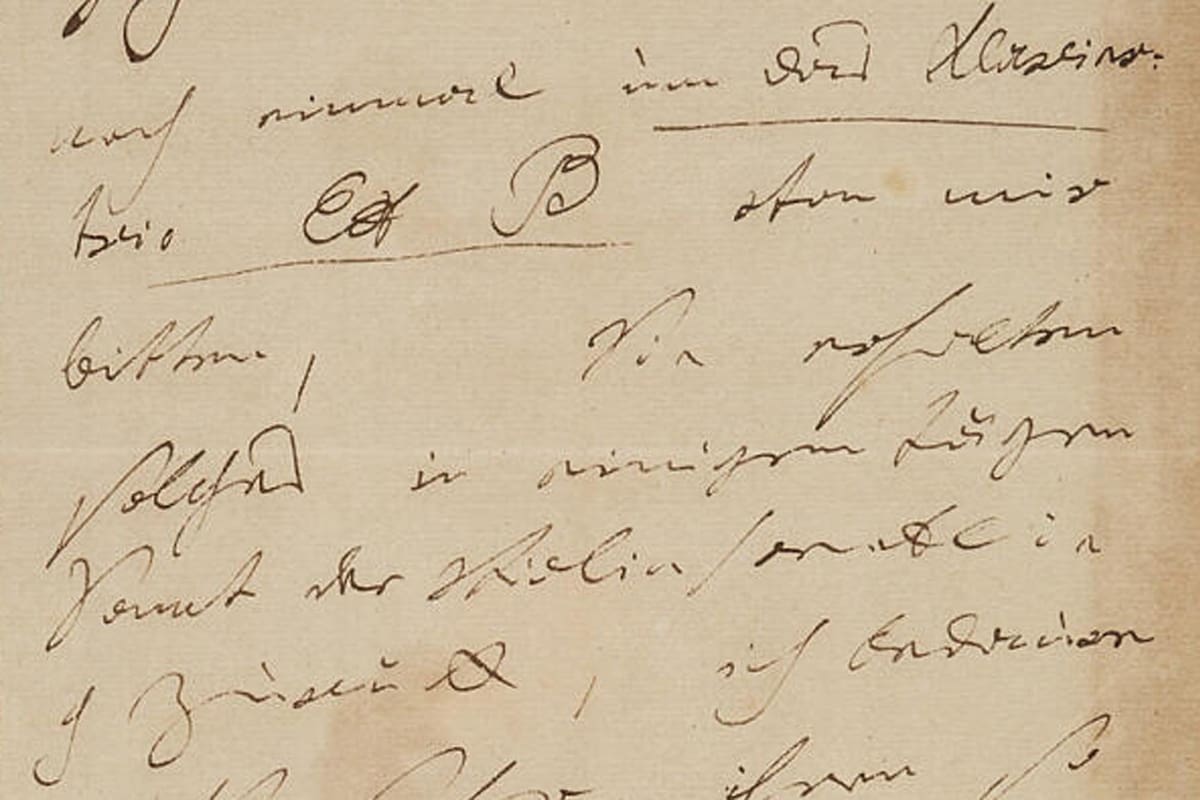 noch einmal um das Klavier-
trio Ex B von mir
bitten, Sie erhalten
solches in einigen Tägen
Samt der Violin sonate in
g zurück, ich bedaure
ihnen so